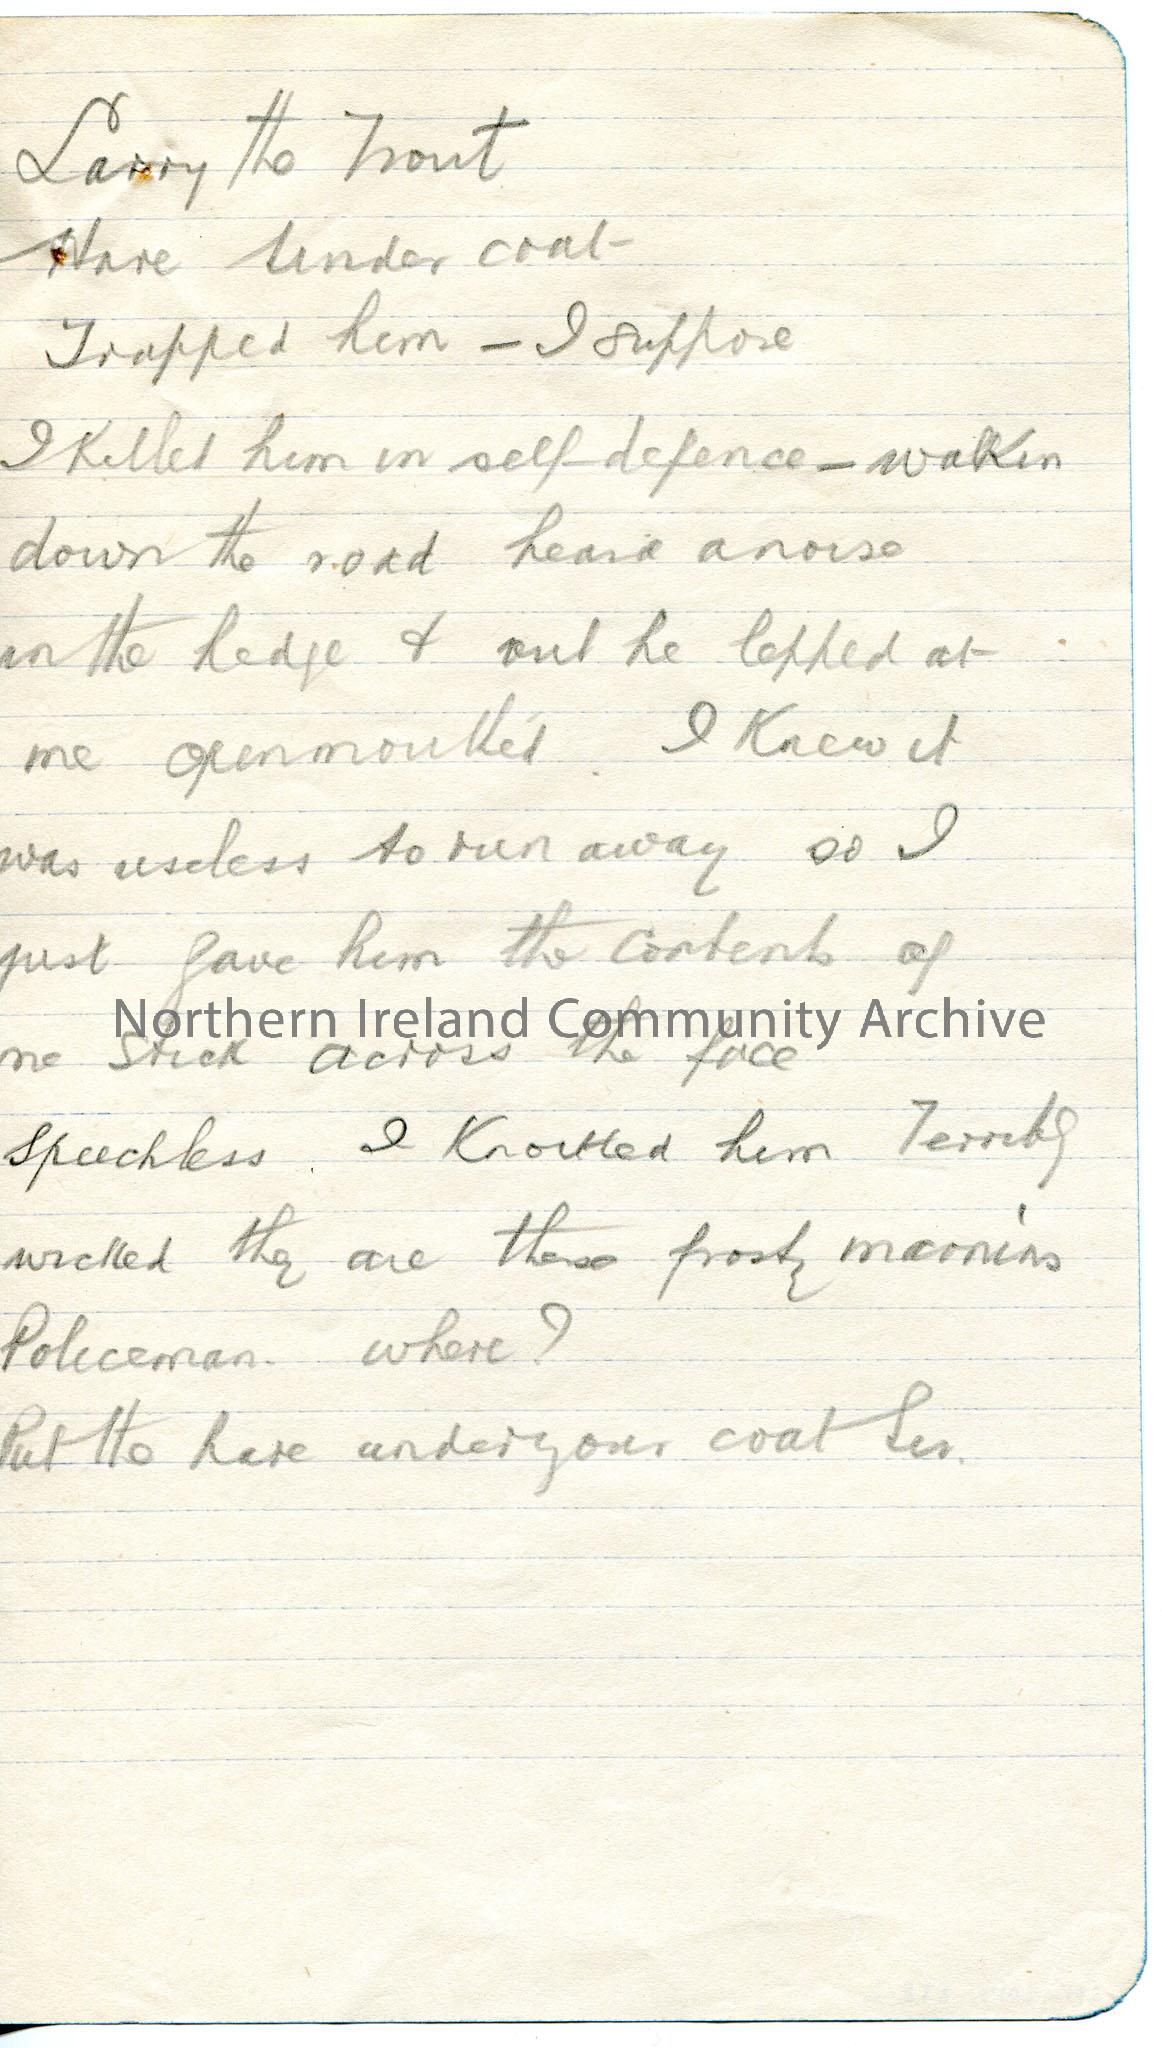 Larry the Trout
Hare under coat
Trapped him – I suppose
I killed him in self-defence – walkin
down the road heard a noise
in the hedge & out he lepped at
me openmouthed. I Knew it
was useless to run away so I
just gave him the contents of
Northern Ireland Community Archive
me stick across the face
Speechless. I Knocked him Terribly
wicked they are these frosty mornins
Policeman. where?
Put the hare under your coat Sir.